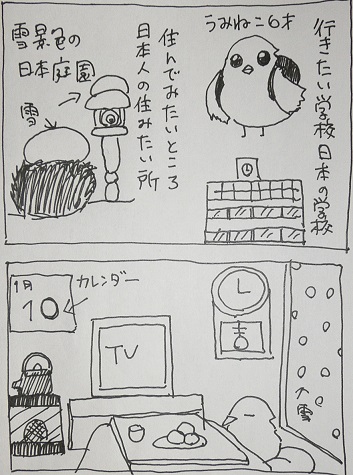 行きたい学校 日本の学校
うみねこ6才
住んでみたいところ
日本人の住みたい所
雪景色の
日本庭園
雪
1月
10
カレンダー
TV
大雪